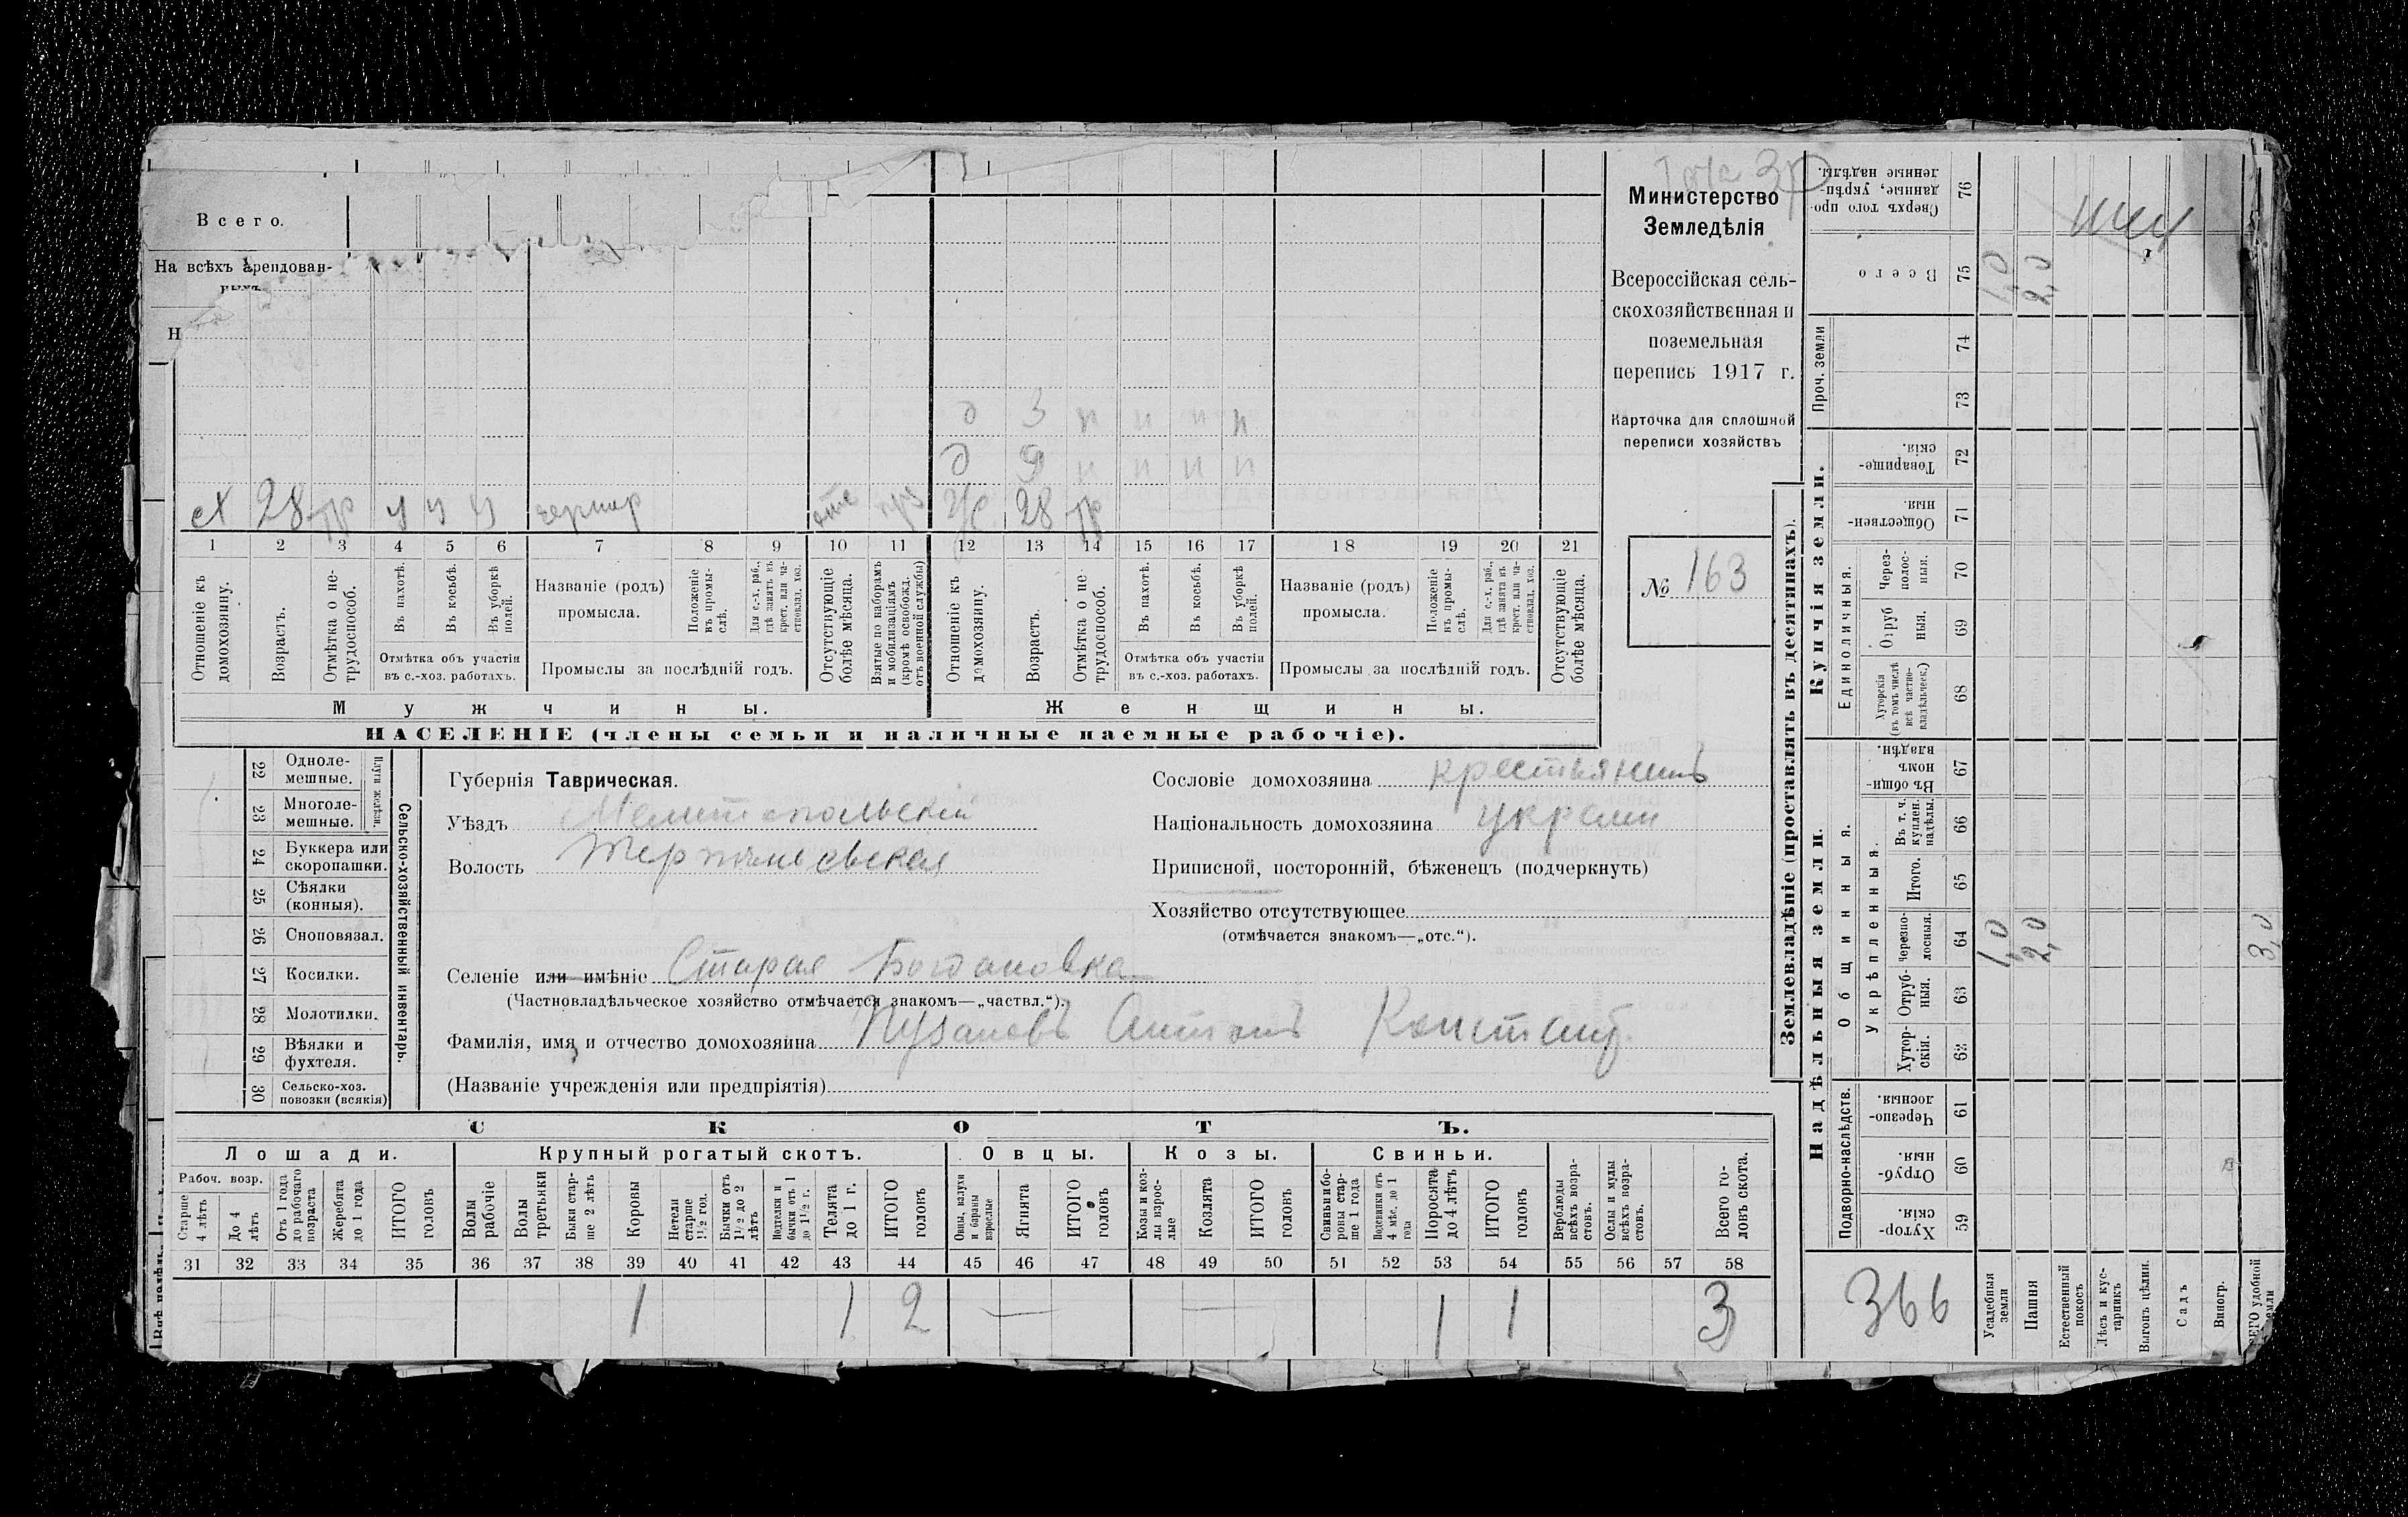 Всего.
На всѣхъ арендован-
ныхъ
Н
д 3 н н н н
д 9 н н н н
сх 28 пр у у у отс ж 28 пр
1 2 3 4 5 6 7 8 9 10 11 12 13 14 15 16 17 18 19 20 21
Отношеніе къ домохозяину.
Возрастъ.
Отмѣтка о не-трудоспособ.
Въ пахотѣ.
Въ косьбѣ.
Въ уборкѣ полей.
Отмѣтка объ участіи
въ с.-хоз. работахъ.
Названіе (родъ)
промысла.
Положеніе въ промы-слѣ.
Для с.-х. раб., гдѣ занятъ въ крест. или ча-стновлад. хоз.
Промыслы за послѣдній годъ.
Отсутствующіе болѣе мѣсяца.
Взятые по наборамъ и мобилизаціямъ (кромѣ освобожд. отъ военной службы)
Отношеніе къ домохозяину.
Возрастъ.
Отмѣтка о не-трудоспособ.
Въ пахотѣ.
Въ косьбѣ.
Въ уборкѣ полей.
Отмѣтка объ участіи
въ с.-хоз. работахъ.
Названіе (родъ)
промысла.
Положеніе въ промы-слѣ.
Для с.-х. раб., гдѣ занятъ въ крест. или ча-стновлад. хоз.
Промыслы за послѣдній годъ.
Отсутствующіе болѣе мѣсяца.
Мужчины. Женщины.
НАСЕЛЕНІЕ (члены семьи и наличные наемные рабочіе).
Министерство
Земледѣлія
Всероссійская сель-
скохозяйственная и
поземельная
перепись 1917 г.
Карточка для сплошной
переписи хозяйствъ
№ 163
22 Одноле-
мешные.
23 Многоле-
мешные.
Плуги желѣзн.
24 Буккера или
скоропашки.
25 Сѣялки
(конныя).
26 Сноповязал.
27 Косилки.
28 Молотилки.
29 Вѣялки и
фухтеля.
30 Сельско-хоз.
повозки (всякія)
Сельско-хозяйственный инвентарь.
Губернія Таврическая.
Уѣздъ Мелитопольскій
Волость Терпѣньевская
Селеніе или имѣніе Старая Богдановка
(Частновладѣльческое хозяйство отмѣчается знакомъ—„частвл.“).
Фамилія, имя, и отчество домохозяина Пузановъ Антонъ Констант.
(Названіе учрежденія или предпріятія)
Сословіе домохозяина крестьянинъ
Національность домохозяина украин
Приписной, посторонній, бѣженецъ (подчеркнуть)
Хозяйство отсутствующее
(отмѣчается знакомъ—„отс.“).
СКОТЪ.
Лошади. Крупный рогатый скотъ. Овцы. Козы. Свиньи.
Рабоч. возр.
Старше 4 лѣтъ
До 4 лѣтъ
Отъ 1 года до рабочаго возраста
Жеребята до 1 года
ИТОГО головъ
Волы рабочіе
Волы третьяки
Быки стар-ше 2 лѣтъ
Коровы
Нетели старше 1½ год.
Бычки отъ 1½ до 2 лѣтъ
Подтелки и бычки отъ 1 до 1½ г.
Телята до 1 г.
ИТОГО головъ
Овцы, валухи и бараны взрослые
Ягнята
ИТОГО головъ
Козы и коз-лы взрос-лые
Козлята
ИТОГО головъ
Свиньи и бо-ровы стар-ше 1 года
Подсвинки отъ 4 мѣс. до 1 года
Поросята до 4 лѣтъ
ИТОГО головъ
Верблюды всѣхъ возра-стовъ.
Ослы и мулы всѣхъ возра-стовъ.
Всего го-ловъ скота.
31 32 33 34 35 36 37 38 39 40 41 42 43 44 45 46 47 48 49 50 51 52 53 54 55 56 57 58
1 1 2 1 1 3
Землевладѣніе (проставлять въ десятинахъ).
Сверхъ того про-
данные, укрѣп-
ленные надѣлы.
76
Всего 75 1,0 2,0
Проч. земли
74
73
Купчія земли.
Товарище-
скія.
72
Обществен-
ныя.
71
Единоличныя.
Через-
полос-
ныя.
70
Отруб
ныя.
69
Хуторскія
(въ томъ числѣ
всѣ частно-
владѣльческ.)
68
Надѣльныя земли.
Общинныя.
Въ общи
номъ
владѣн.
67
Укрѣпленныя.
Въ т. ч.
куплен.
надѣлы.
66
Итого. 65
Черезпо-
лосныя.
64 1,0 2,0 3,0
Отруб-
ныя.
63
Хутор-
скія.
62
Подворно-наслѣдств.
Черезпо-
лосныя.
61
Отруб-
ныя.
60
Хутор-
скія.
59
366
Усадебныя земли
Пашня
Естественный покосъ
Лѣсъ и кус-тарникъ
Выгонъ цѣлин.
Садъ
Виногр.
удобной